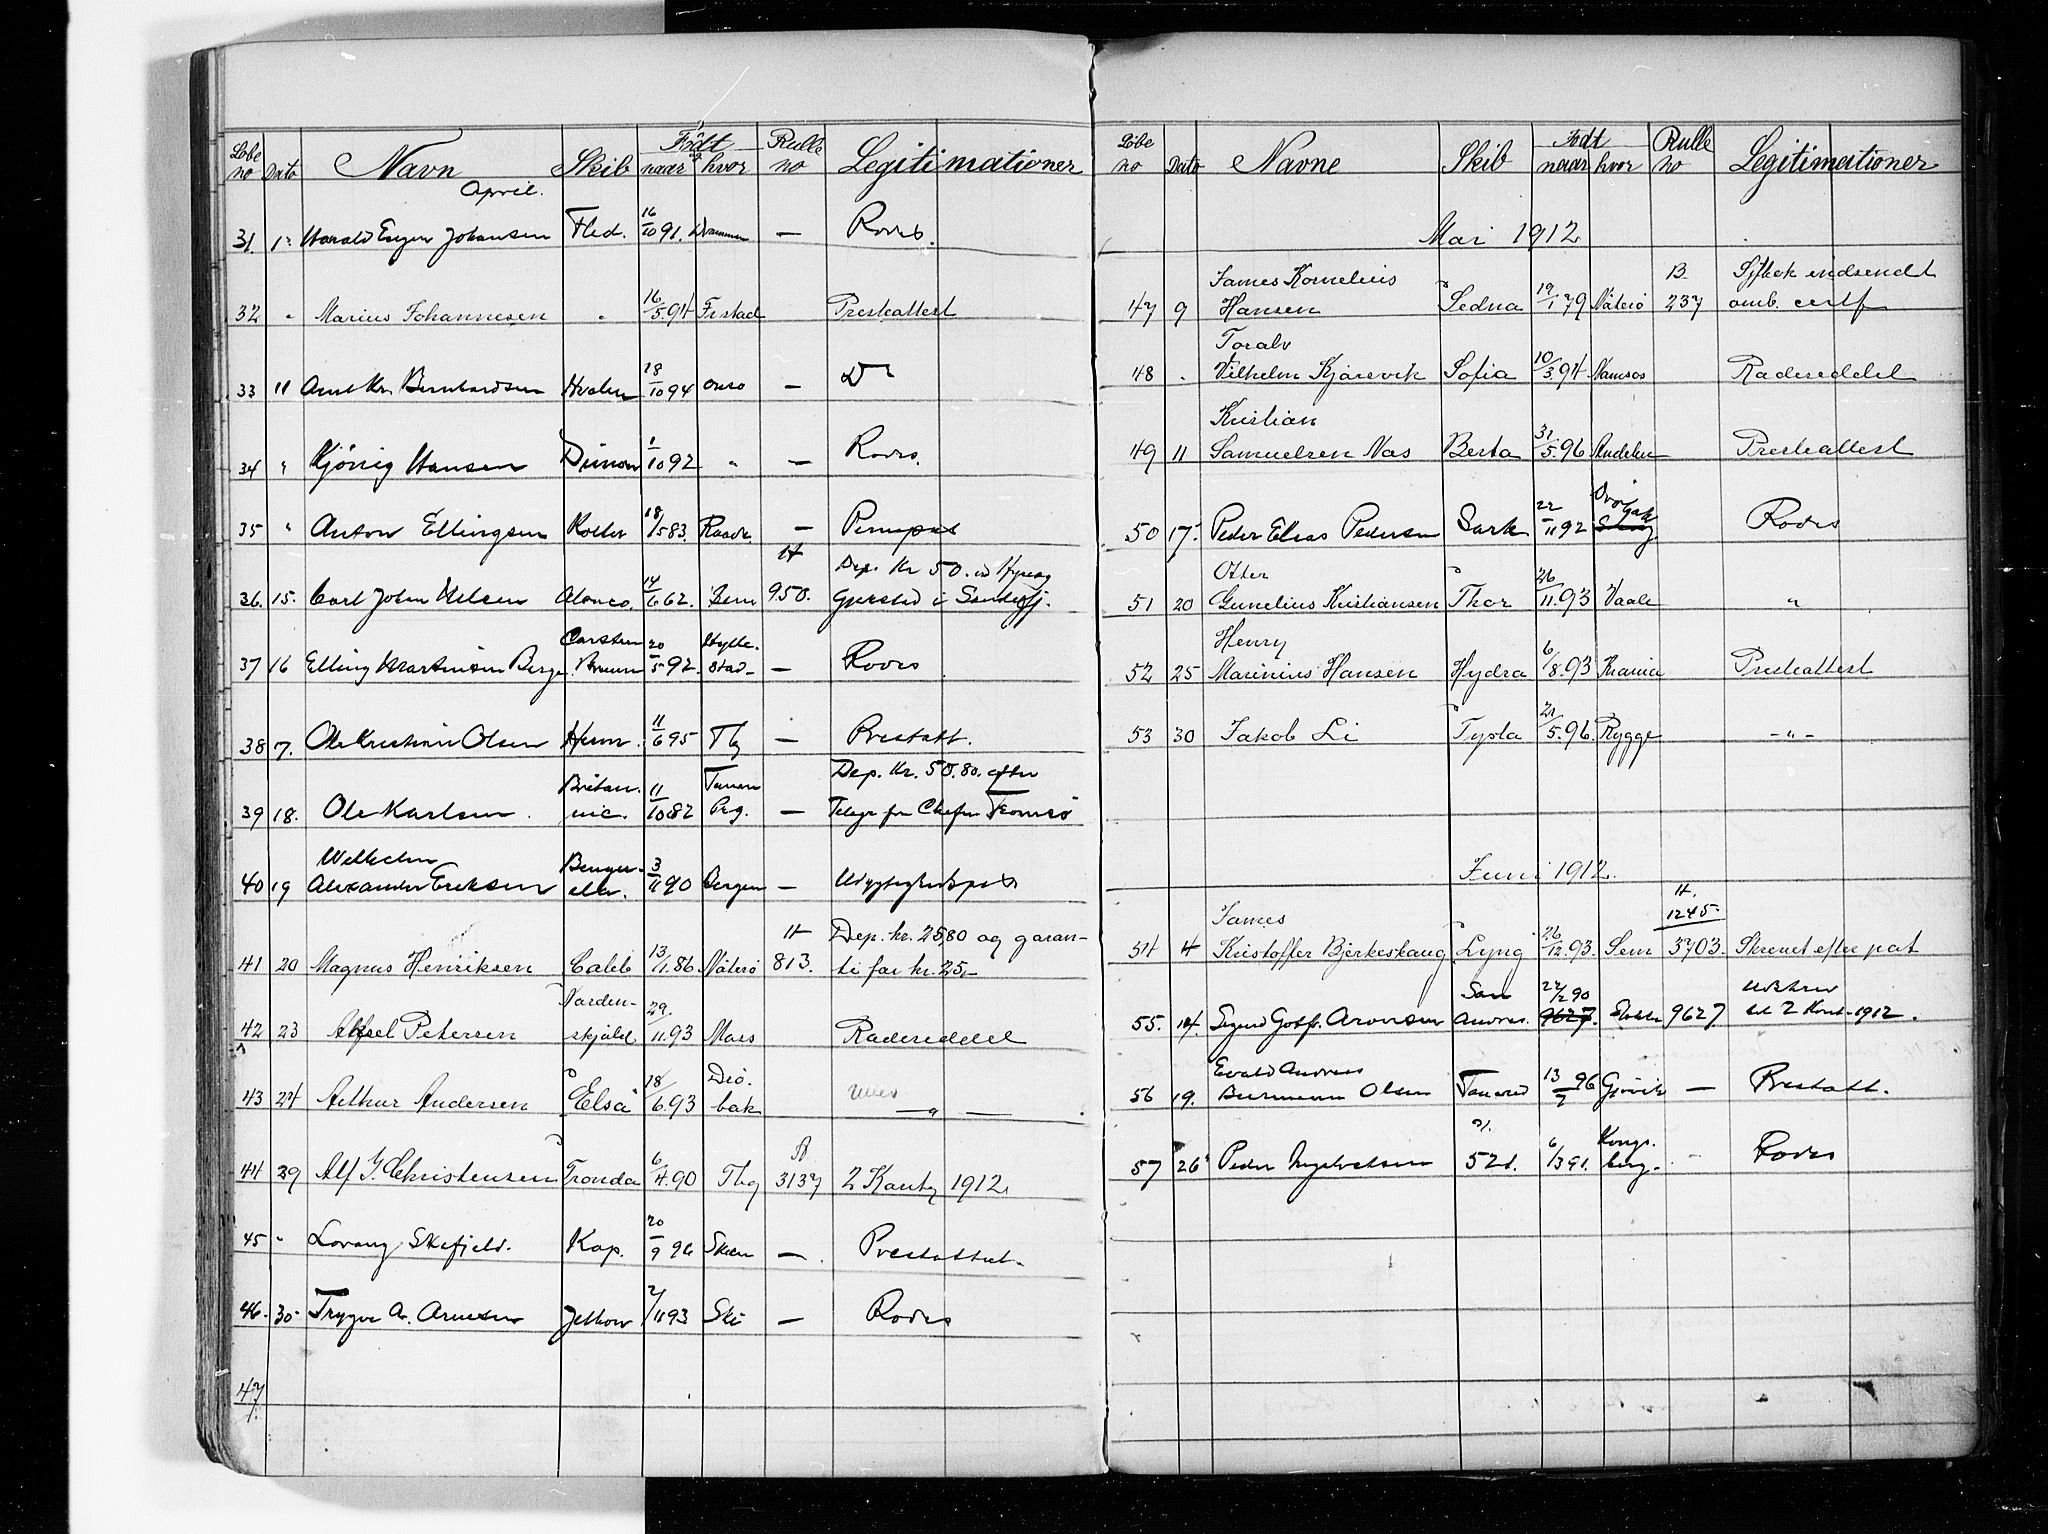 Løbe no Dato Navn Skib Født naar og hvor Rulle no Legitimationer
April.
31. 1 Harald Eugen Johansen Fled. 16/10 91. Drammen — Rodes.
32 " Marius Johannesen " 16/5.94 Frstad Presteattest
33 11 Arnt Kr. Berntardsen Hvalen 18/10 94 Onsø — Do
34 " Hansen 1/10 92 " — Rodes.
35 " Anton Ellingsen 18/5 83. Raade —
36. 15. Carl Johan Nelsen Alonso. 14/6 62. H 950. Dep. Kr 50. Gjerstad i Sandefj.
37 16 Elling Martinsen Berge Carsten 20/5 92. Hylle-stad — Rodes
38 17. Ole Kristian Olsen 11/6 95 Tbg — Prestatt.
39 18. Ole Karlsen. Britan-nic. 11/10 82 — Dep. Kr. 50.80. efter
Telegr fra Chefen Tromsø
40 19 Wilhelm
Alexander Eriksen 3/11 90 Bergen —
41 20 Magnus Henriksen Caleb 13/11.86 Nøterø H 813. Dep. kr. 25,80 og garan-
ti for kr. 25,-
42 23 Aksel Petersen Norden-
skjøld 29./11.93 Moss Radereddel
43 24 Arthur Andersen Elsa 18/6.93 Drø-
bak — " —
44 29 Alf J. Christensen Tronda 6/4.90 Tbg A 3137 2 Kontg 1912.
45 " Skifjeld. Kap. 20/9 96 Skien — Prestattest.
46. 30 Trygve A. Arnesen 2/11 93 Ski — Rodes
47.
Løbe no Dato Navne Skib Født naar hvor Rulle no Legitimationer
Mai 1912.
47 9 James Kornelius
Hansen Sedna 19/1 79 Nøterø B 237 indsendt
amb. certf
48 . Toralv
Vilhelm Kjærevik Sofia 10/3.94 Namsos Radereddel
49 11 Kristian
Samuelsen Nas Berta 31/5.96 Presteattest
50 17. Peder Elias Pedersen Sark 22/11 92 Rodes
51 20 Otter
Gunelius Kristiansen Thor 26/11.93 Vaale "
52 25 Henry
Marinius Hansen Hydra 6/8.93 Krania Presteattest
53 30 Jakob Li Tysla 21/5.96. Rygge - " -
Juni 1912.
54 4 James
Kristoffer Bjerkeskaug Lyng 26/12.93. Sem H. 1245. 3703. Skrevet efter pat
55. 14. Sigurd Gotfr. Aronsen San Andres. 22/2 90 9627. Stokke 9627. Udskrev
til 2 Kont. 1912.
56 19. Evald Andreas
Burmann Olsen Tancred 13/7 96 Gjøvik — Prestatt.
57 26 Peder Ingebretsen 521. 6/3 91. Kongs-
berg. - Rodes